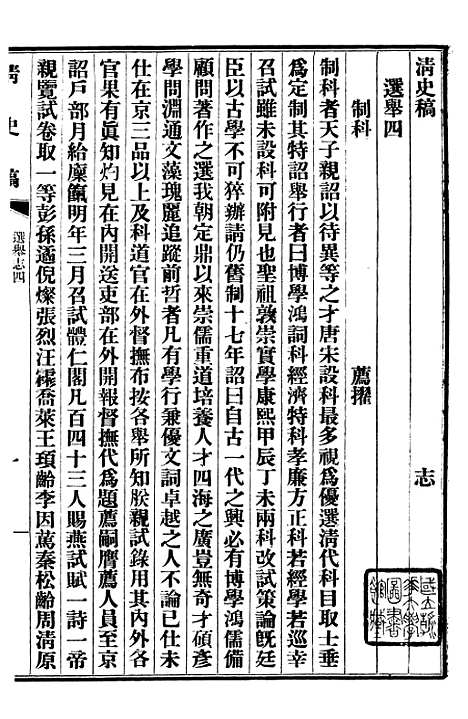 清史稿 志
選舉四
制科 薦擢
制科者天子親詔以待異等之才唐宋設科最多視爲優選清代科目取士垂
爲定制其特詔舉行者曰博學鴻詞科經濟特科孝廉方正科若經學若巡幸
召試雖未設科可附見也聖祖敦崇實學康熙甲辰丁未兩科改試策論旣廷
臣以古學不可猝辦請仍舊制十七年詔曰自古一代之興必有博學鴻儒備
顧問著作之選我朝定鼎以來崇儒重道培養人才四海之廣豈無奇才碩彥
學問淵通文藻瑰麗追蹤前哲者凡有學行兼優文詞卓越之人不論已仕未
仕在京三品以上及科道官在外督撫布按各舉所知朕親試錄用其內外各
官果有眞知灼見在內開送吏部在外開報督撫代爲題薦嗣膺薦人員至京
詔戶部月給廩餼明年三月召試體仁閣凡百四十三人賜燕試賦一詩一帝
親覽試卷取一等彭孫遹倪燦張烈汪霦喬萊王頊齡李因篤秦松齡周清原
清史稿
選舉志四
一